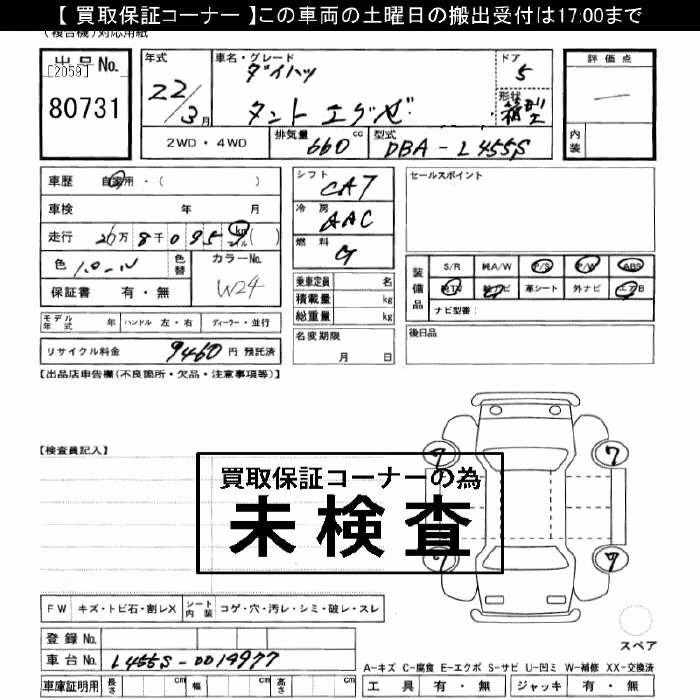 【 買取保証コーナー 】この車両の土曜日の搬出受付は17:00まで
(複合機)対応用紙
出品No.
[2059]
80731
年式
22/3月
車名・グレード
ダイハツ
タント エグゼ
ドア
5
形状
箱型
評価点
内装
2WD・4WD
排気量 660 cc
型式 DBA-L455S
車歴 自家用・( )
車検 年 月
走行 26万8千095 km マイル( )
色 パール
色替
カラーNo. W24
保証書 有・無
シフト CAT
冷房 AAC
燃料 G
乗車定員 名
積載量 kg
総重量 kg
名変期限
月 日
セールスポイント
装備品
S/R 純A/W P/S P/W ABS
純TV 純ナビ 革シート 外ナビ エアB
ナビ型番:
後日品
モデル年式 年 ハンドル 左・右 ディーラー・並行
リサイクル料金 9460 円 預託済
【出品店車告欄(不良箇所・欠品・注意事項等)】
【検査員記入】
買取保証コーナーの為
未検査
7
7
7
7
FW キズ・トビ石・割レX
シート内装 コゲ・穴・汚レ・シミ・破レ・スレ
登録No.
車台No. L455S-0014977
車庫証明用 長さ cm 幅 cm 高さ cm
スペア
A-キズ C-腐食 E-エクボ S-サビ U-凹ミ W-補修 XX-交換済
工具 有・無 ジャッキ 有・無